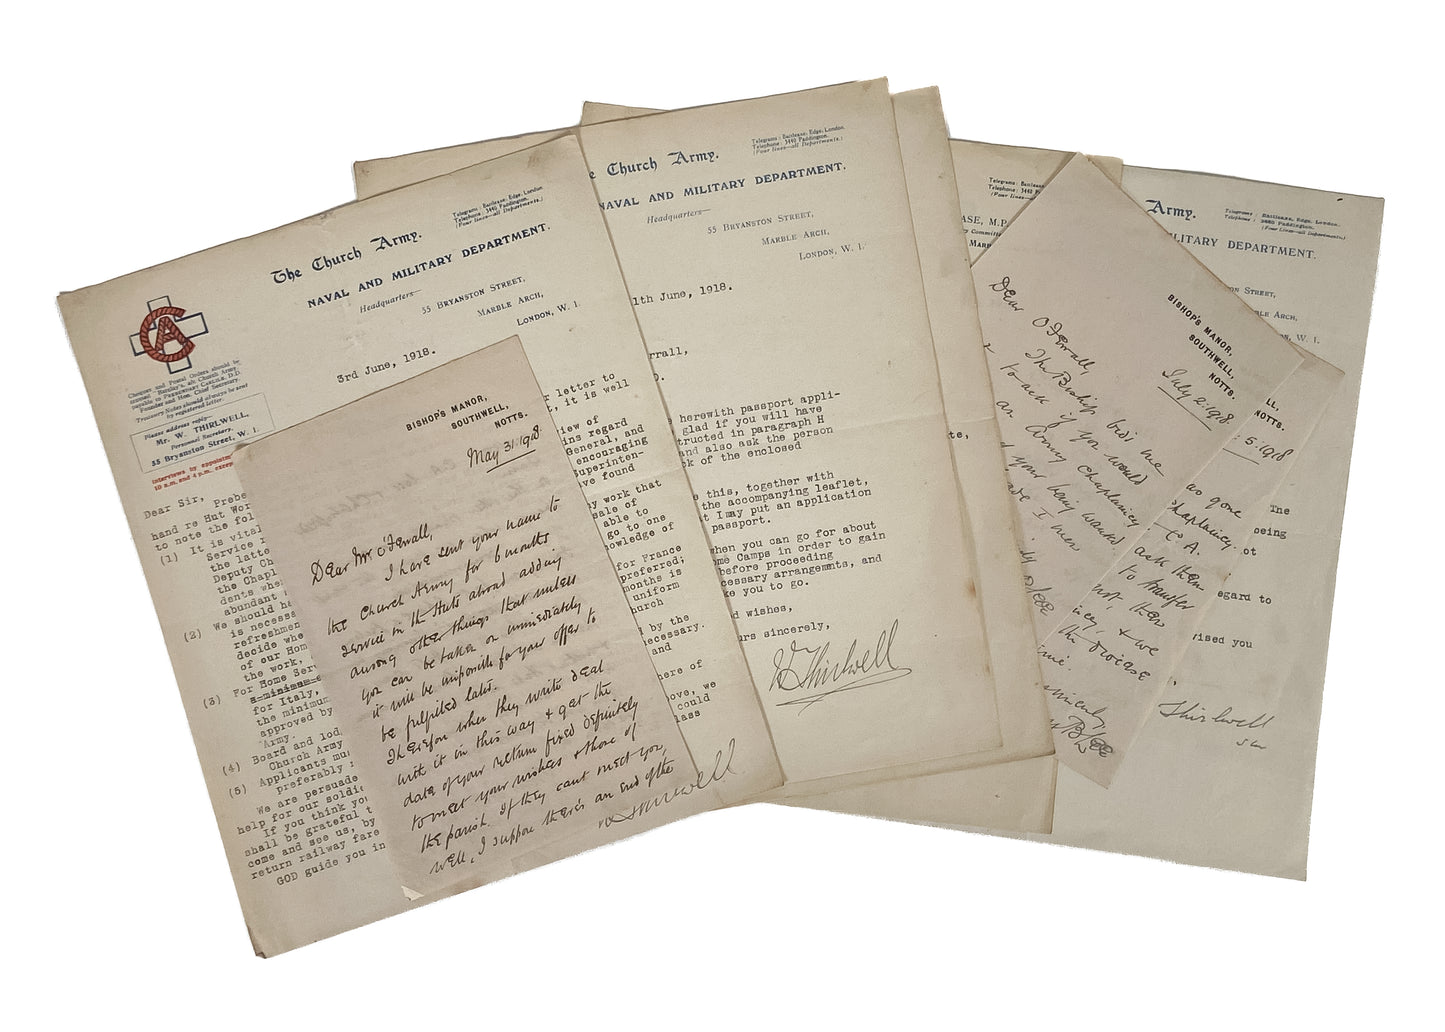 The Church Army.
NAVAL AND MILITARY DEPARTMENT.
Telegrams: Battlease, Edge, London.
Telephone: 3440 Paddington.
(Four lines—all Departments.)
Headquarters—
55 BRYANSTON STREET,
MARBLE ARCH,
LONDON, W. 1.
CA
3rd June, 1918.
Cheques and Postal Orders should be
crossed Barclay's, a/c Church Army,
payable to PREBENDARY CARLILE, D.D.
Founder and Hon. Chief Secretary.
Treasury Notes should always be sent
by registered letter.
Please address reply—
Mr. W. THIRLWELL,
Personal Secretary,
55 Bryanston Street, W. 1.
Interviews by appointm
10 a.m. and 4 p.m. except
Dear Sir,
Prebe
hand re Hut Wor
to note the fol
(1) It is vital
Service
the latte
Deputy Ch
the Chapl
dents whe
abundant
(2) We should ha
is necessa
refreshmen
decide whe
of our Hom
the work,
(3) For Home Serv
a minimum
for Italy,
the minimum
approved by
Army.
(4) Board and lod
Church Army
(5) Applicants mu
preferably
We are persuade
help for our soldie
If you think yo
shall be grateful t
come and see us, by
return railway fare
GOD guide you in
r letter to
t, it is well
iew of
ins regard
General, and
encouraging
Superinten-
ve found
y work that
sale of
able to
go to one
owledge of
for France
preferred;
months is
uniform
hurch
by the
ecessary.
and
here of
ove, we
could
lass
Thirlwell
BISHOP'S MANOR,
SOUTHWELL,
NOTTS.
May 31: 1918.
Dear Mr. O'Ferrall,
I have sent your name to
the Church Army for 6 months
service in the Huts abroad adding
among other things that unless
you can be taken on immediately
it will be impossible for your offer to
be fulfilled later.
Therefore when they write deal
with it in this way & get the
date of your return fixed definitely
to meet your wishes & those of
the parish. If they cant meet you,
well, I suppose there's an end of the
e Church Army.
NAVAL AND MILITARY DEPARTMENT.
Telegrams: Battlease, Edge, London.
Telephone: 3440 Paddington.
(Four lines—all Departments.)
Headquarters—
55 BRYANSTON STREET,
MARBLE ARCH,
LONDON, W. 1.
1th June, 1918.
rrall,
herewith passport appli-
glad if you will have
tructed in paragraph H
and also ask the person
k of the enclosed
e this, together with
the accompanying leaflet,
t I may put an application
passport.
when you can go for about
ome Camps in order to gain
before proceeding
cessary arrangements, and
ke you to go.
d wishes,
urs sincerely,
W Thirlwell
Telegrams: Battlease
Telephone: 3440 Pad
(Four lines—al
ASE, M.P.
Committ
MARB
te,
BISHOP'S MANOR,
SOUTHWELL,
NOTTS.
July 2: 1918.
Dear O'Ferrall,
The Bishop bids me
to ask if you would
an Army Chaplaincy
your being wanted.
LL,
NOTTS.
5: 1918
as gone
Chaplaincy.
C. A.
ask them
to transfer
not, then
& we
Army.
Telegrams: Battlease, Edge, London.
Telephone: 3440 Paddington.
(Four lines—all Departments.)
ILITARY DEPARTMENT.
ON STREET,
BLE ARCH,
N, W. 1.
The
being
ot
egard to
vised you
Thirlwell